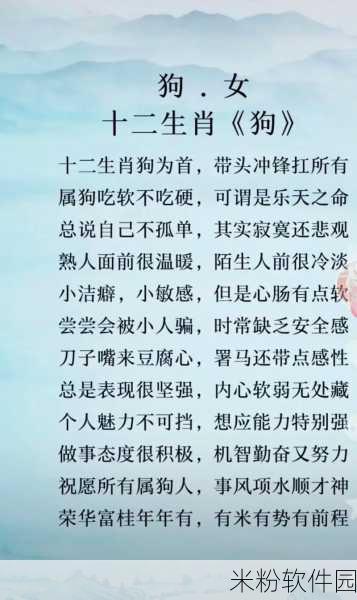 狗.女
十二生肖《狗》
十二生肖狗为首，带头冲锋扛所有
属狗吃软不吃硬，可谓是乐天之命
总说自己不孤单，其实寂寞还悲观
熟人面前很温暖，陌生人前很冷淡
小洁癖，小敏感，但是心肠有点软
尝尝会被小人骗，时常缺乏安全感
刀子嘴来豆腐心，署马还带点感性
总是表现很坚强，内心软弱无处藏
个人魅力不可挡，想应能力特别强
做事态度很积极，机智勤奋又努力
祝愿所有属狗人，事风项水顺才神
荣华富桂年年有，有米有势有前程
米粉软件园